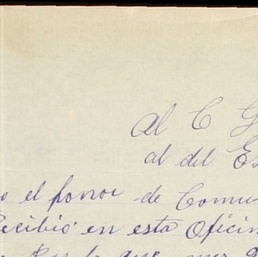 Al C G
al del Es
o el honor de Comu
Recibió en esta Oficin
Por lo que